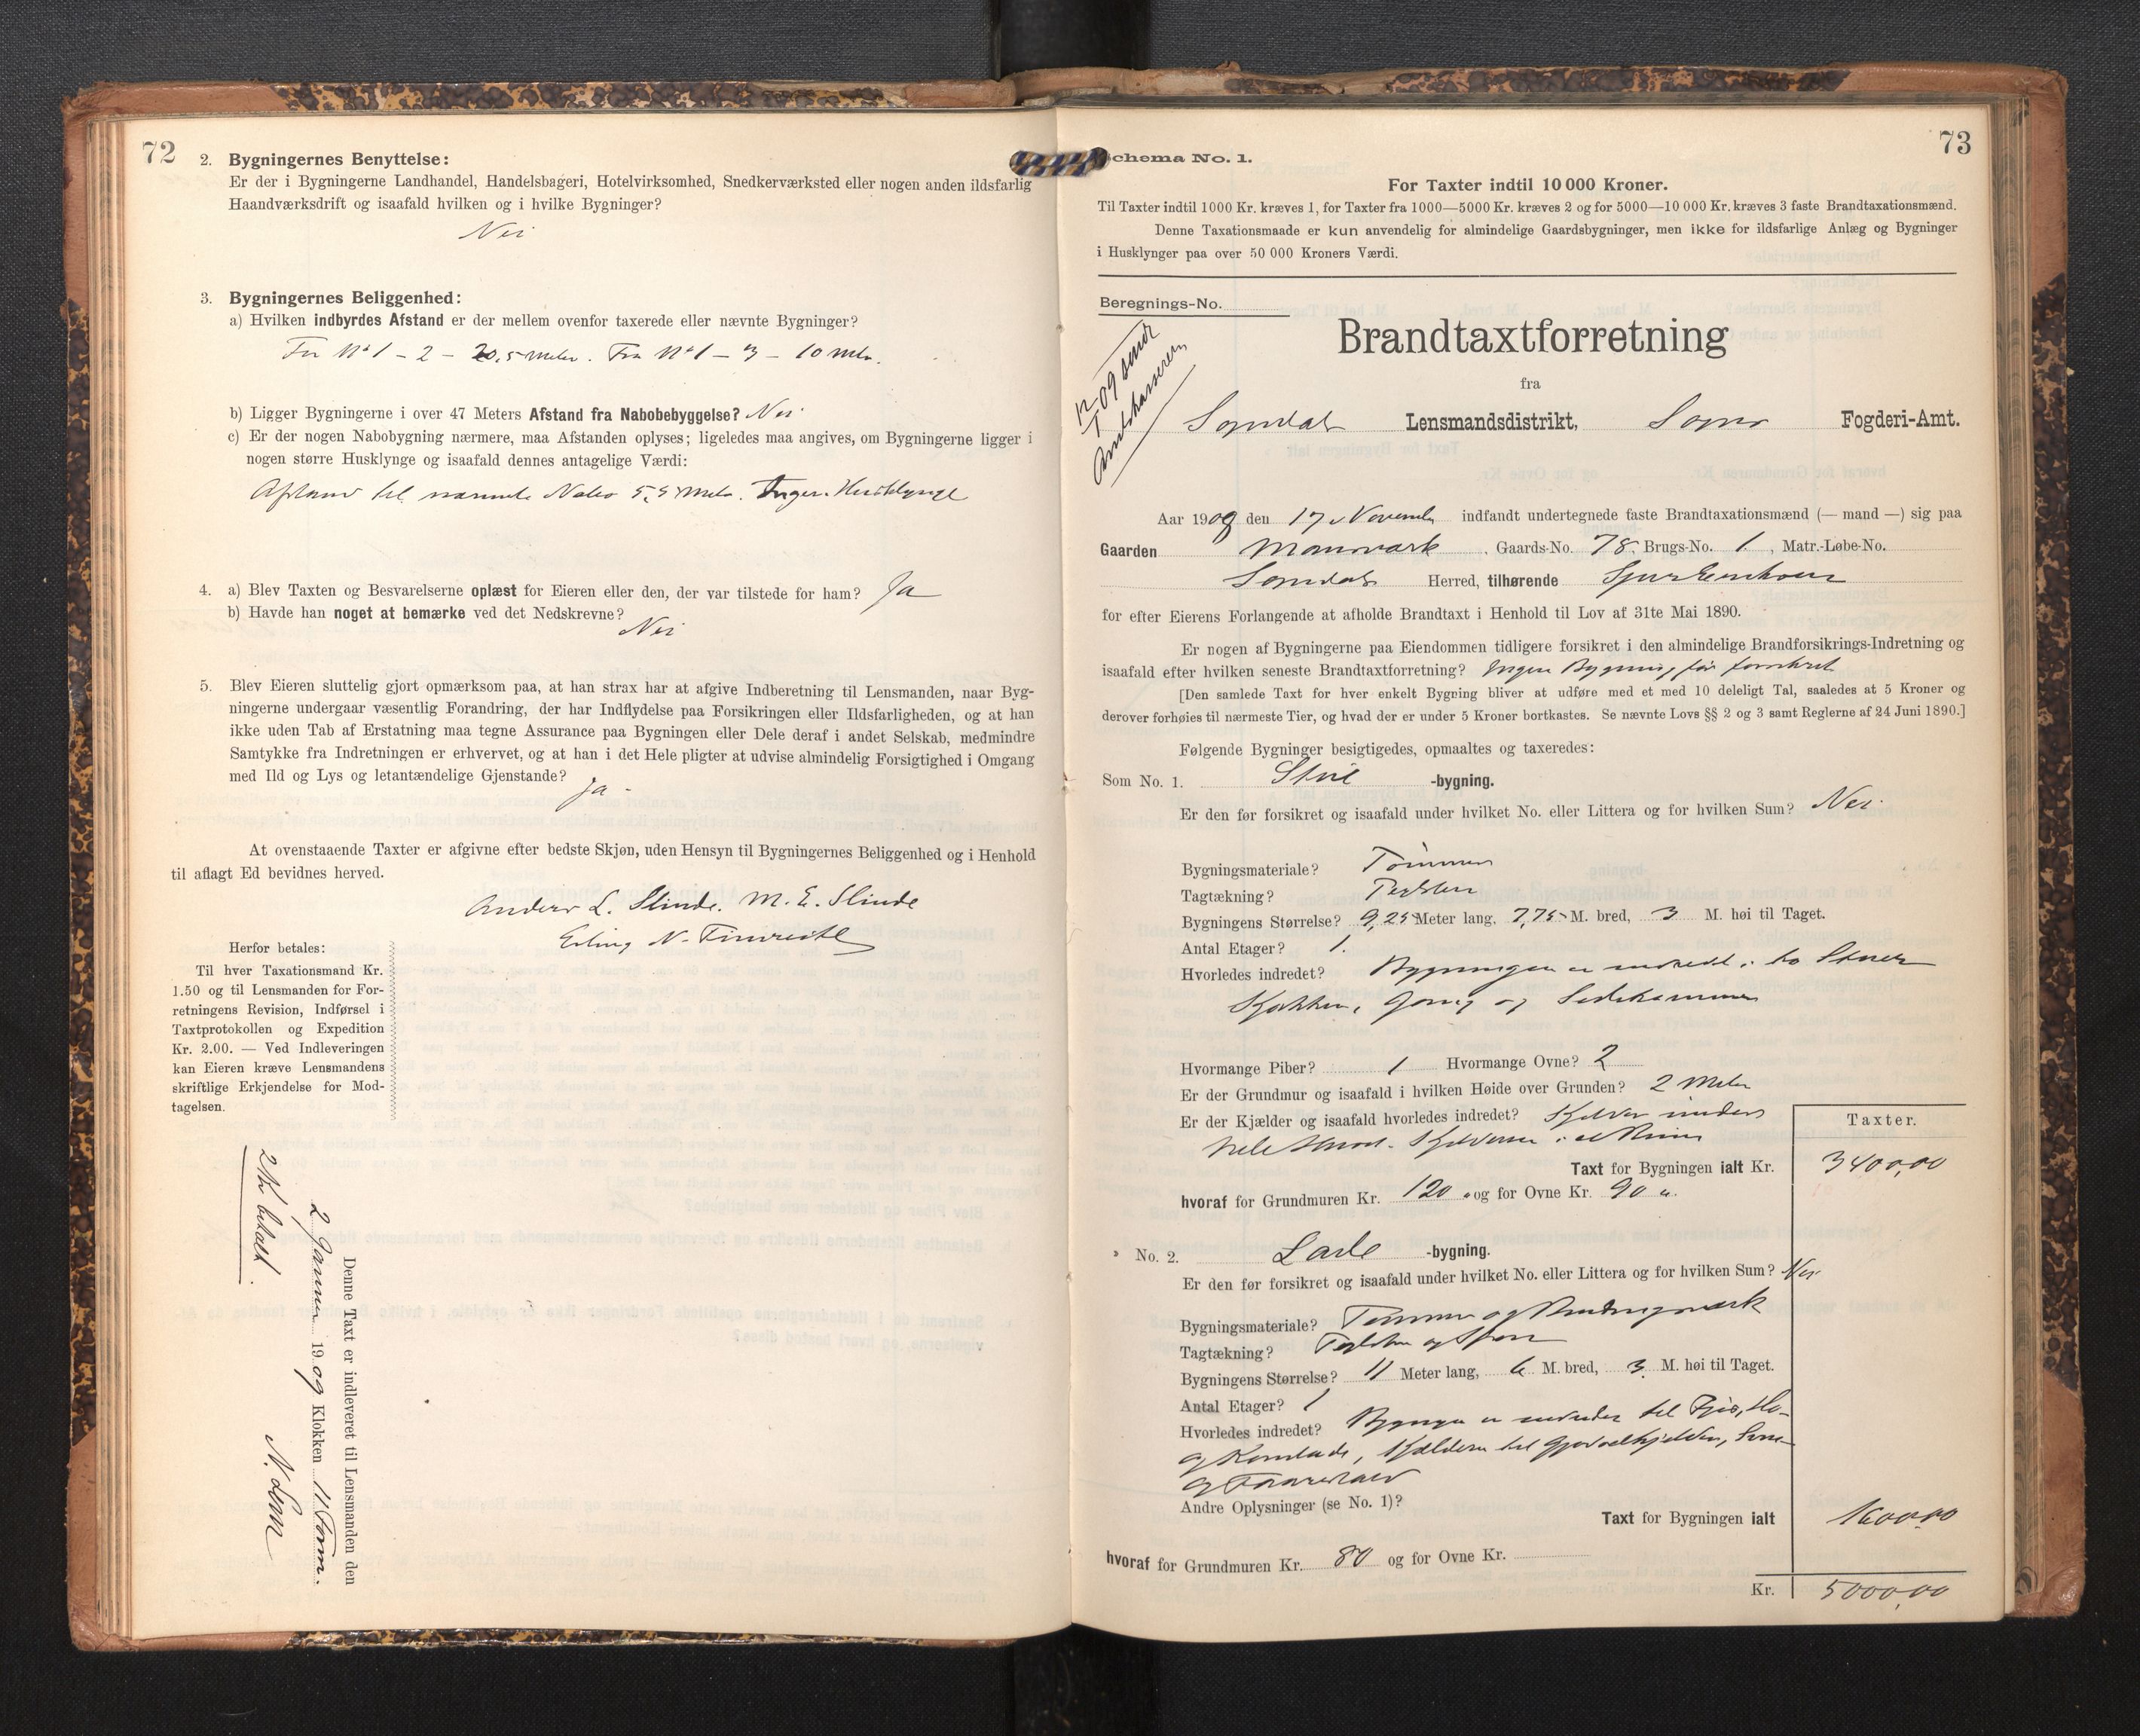 72
2. Bygningernes Benyttelse:
Er der i Bygningerne Landhandel, Handelsbageri, Hotelvirksomhed, Snedkerværksted eller nogen anden ildsfarlig
Haandværksdrift og isaafald hvilken og i hvilke Bygninger?
Nei
3. Bygningernes Beliggenhed:
a) Hvilken indbyrdes Afstand er der mellem ovenfor taxerede eller nævnte Bygninger?
Fra No 1 - 2 - 20,5 Meter. Fra No 1 - 3 - 10 Mtr.
b) Ligger Bygningerne i over 47 Meters Afstand fra Nabobebyggelse? Nei
c) Er der nogen Nabobygning nærmere, maa Afstanden oplyses; ligeledes maa angives, om Bygningerne ligger i
nogen større Husklynge og isaafald dennes antagelige Værdi:
Afstand til nærmeste Nabo 5,5 Meter. Ingen Husklynge
4. a) Blev Taxten og Besvarelserne oplæst for Eieren eller den, der var tilstede for ham? Ja
b) Havde han noget at bemærke ved det Nedskrevne?
Nei
5. Blev Eieren sluttelig gjort opmærksom paa, at han strax har at afgive Indberetning til Lensmanden, naar Byg-
ningerne undergaar væsentlig Forandring, der har Indflydelse paa Forsikringen eller Ildsfarligheden, og at han
ikke uden Tab af Erstatning maa tegne Assurance paa Bygningen eller Dele deraf i andet Selskab, medmindre
Samtykke fra Indretningen er erhvervet, og at han i det Hele pligter at udvise almindelig Forsigtighed i Omgang
med Ild og Lys og letantændelige Gjenstande?
Ja -
At ovenstaaende Taxter er afgivne efter bedste Skjøn, uden Hensyn til Bygningernes Beliggenhed og i Henhold
til aflagt Ed bevidnes herved.
Anders L. Slinde. M. E. Slinde
Erling N.
Herfor betales:
Til hver Taxationsmand Kr.
1.50 og til Lensmanden for For-
retningens Revision, Indførsel i
Taxtprotokollen og Expedition
Kr. 2.00. — Ved Indleveringen
kan Eieren kræve Lensmandens
skriftlige Erkjendelse for Mod-
tagelsen.
Denne Taxt er indleveret til Lensmanden den
2 Januar 1909 Klokken 11 Form.
N.
2 Kr betalt.
73
chema No. 1.
For Taxter indtil 10 000 Kroner.
Til Taxter indtil 1000 Kr. kræves 1, for Taxter fra 1000—5000 Kr. kræves 2 og for 5000—10 000 Kr. kræves 3 faste Brandtaxationsmænd.
Denne Taxationsmaade er kun anvendelig for almindelige Gaardsbygninger, men ikke for ildsfarlige Anlæg og Bygninger
i Husklynger paa over 50 000 Kroners Værdi.
Beregnings-No.
12/1 09 sendt
Brandtaxtforretning
fra
Sogndal Lensmandsdistrikt, Sogns Fogderi-Amt.
Aar 1908 den 17 November indfandt undertegnede faste Brandtaxationsmænd (— mand —) sig paa
Gaarden , Gaards-No. 78, Brugs-No. 1. , Matr.-Løbe-No.
Sogndals Herred, tilhørende
for efter Eierens Forlangende at afholde Brandtaxt i Henhold til Lov af 31te Mai 1890.
Er nogen af Bygningerne paa Eiendommen tidligere forsikret i den almindelige Brandforsikrings-Indretning og
isaafald efter hvilken seneste Brandtaxtforretning? Ingen Bygning før forsikret
[Den samlede Taxt for hver enkelt Bygning bliver at udføre med et med 10 deleligt Tal, saaledes at 5 Kroner og
derover forhøies til nærmeste Tier, og hvad der er under 5 Kroner bortkastes. Se nævnte Lovs §§ 2 og 3 samt Reglerne af 24 Juni 1890.]
Følgende Bygninger besigtigedes, opmaaltes og taxeredes:
Som No. 1. -bygning.
Er den før forsikret og isaafald under hvilket No. eller Littera og for hvilken Sum? Nei
Bygningsmateriale? Tømmer
Tagtækning? Teglsten
Bygningens Størrelse? 9,25 Meter lang, 7,75 M. bred, 3 M. høi til Taget.
Antal Etager? 1.
Hvorledes indredet? Bygningen er indredet i to Stuer
Kjøkken, Gang og Sidekammer
Hvormange Piber? 1 Hvormange Ovne? 2
Er der Grundmur og isaafald i hvilken Høide over Grunden? 2 Meter
Er der Kjælder og isaafald hvorledes indredet? Kjelder under
hele Huset. Kjelderen i et Rum
Taxter.
Taxt for Bygningen ialt Kr. 3400,00
hvoraf for Grundmuren Kr. 120 og for Ovne Kr. 90
No. 2. Lade -bygning.
Er den før forsikret og isaafald under hvilket No. eller Littera og for hvilken Sum? Nei
Bygningsmateriale? Tømmer og Bindingsværk
Tagtækning? Teglsten og Spon
Bygningens Størrelse? 11 Meter lang, 6 M. bred, 3 M. høi til Taget.
Antal Etager? 1
Hvorledes indredet? Bygningen er indredet til Fjøs, Hø-
og Kornlade, Kjælderen til Gjødselkjelder,
og
Andre Oplysninger (se No. 1)?
Taxt for Bygningen ialt 1600,00
hvoraf for Grundmuren Kr. 80 og for Ovne Kr.
Kr. 5000,00